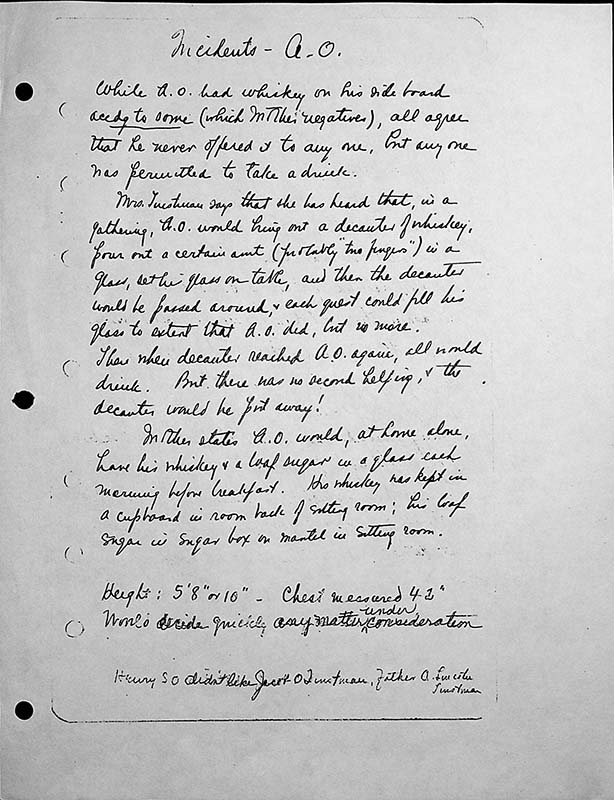 Incidents - A.O.
While A.O. had whiskey on his side board
accdg to some (which Mother negatives), all agree
that he never offered it to any one, but any one
was permitted to take a drink.
Mrs. Tinstman says that she has heard that, in a
gathering, A.O. would bring out a decanter of whiskey,
pour out a certain amt (probably "two fingers") in a
glass, set his glass on table, and then the decanter
would be passed around, & each guest could fill his
glass to extent that A.O. did, but no more.
Then when decanter reached A.O. again, all would
drink. But there was no second helping, & the
decanter would be put away!
Mother states A.O. would, at home alone,
have his whiskey & a loaf sugar in a glass each
morning before breakfast. His whiskey was kept in
a cupboard in room back of sitting room; his loaf
sugar in sugar box on mantel in sitting room.
Height: 5'8" or 10" - Chest measured 42"
Would decide quickly any matter under consideration
Henry S O didn't like Jacob O Tinstman, Father A. Lincoln
Tinstman